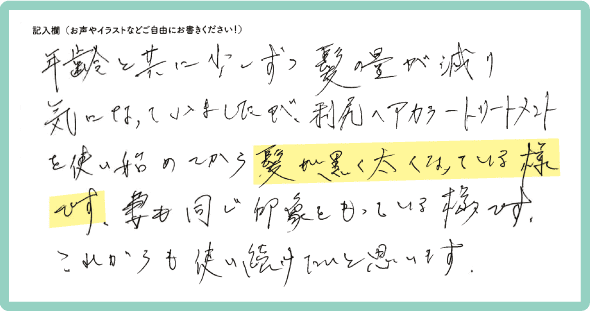 記入欄（お声やイラストなどご自由にお書きください！）
年齢と共に少しずつ髪の量が減り
気になっていましたが、利尻ヘアカラートリートメント
を使い始めてから髪が黒く太くなっている様
です。妻も同じ印象をもっている様です。
これからも使い続けたいと思います。